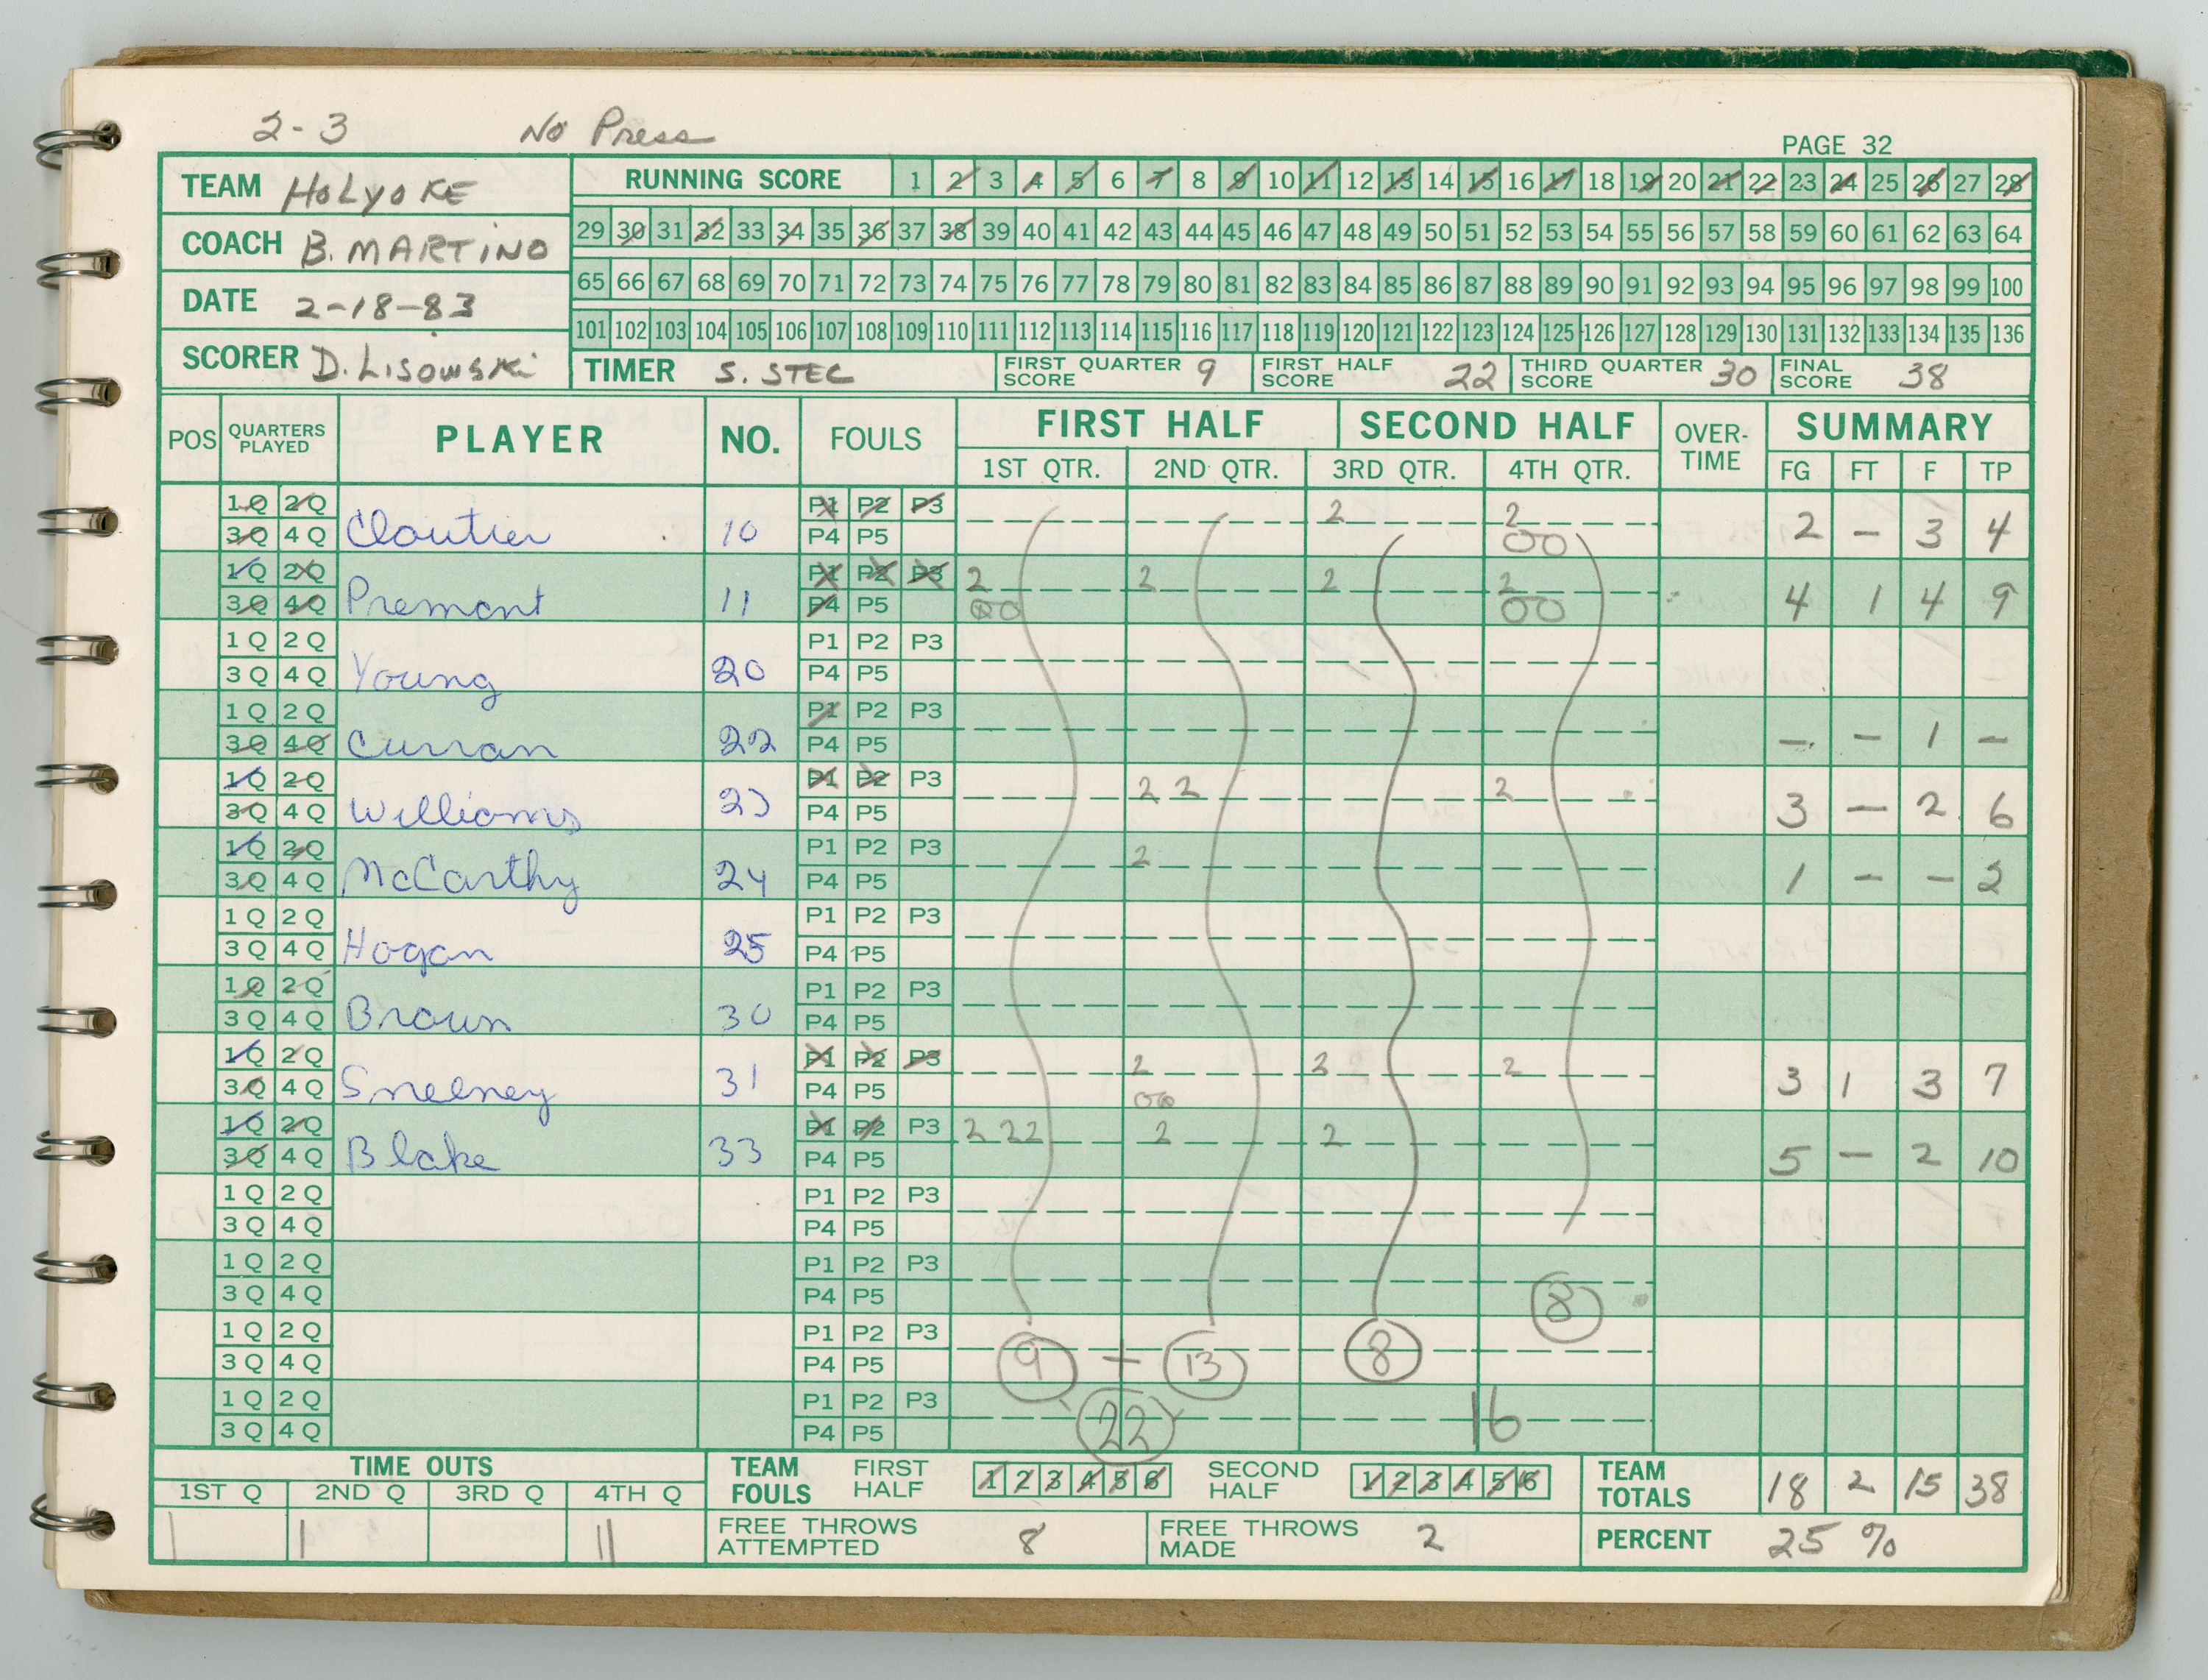 2-3 No Press
PAGE 32
TEAM HOLYOKE RUNNING SCORE 1 2 3 4 5 6 7 8 9 10 11 12 13 14 15 16 17 18 19 20 21 22 23 24 25 26 27 28
COACH B. MARTINO 29 30 31 32 33 34 35 36 37 38 39 40 41 42 43 44 45 46 47 48 49 50 51 52 53 54 55 56 57 58 59 60 61 62 63 64
DATE 2-18-83 65 66 67 68 69 70 71 72 73 74 75 76 77 78 79 80 81 82 83 84 85 86 87 88 89 90 91 92 93 94 95 96 97 98 99 100
101 102 103 104 105 106 107 108 109 110 111 112 113 114 115 116 117 118 119 120 121 122 123 124 125 126 127 128 129 130 131 132 133 134 135 136
SCORER D. LISOWSKI TIMER S. STEC FIRST QUARTER SCORE 9 FIRST HALF SCORE 22 THIRD QUARTER SCORE 30 FINAL SCORE 38
POS QUARTERS PLAYED PLAYER NO. FOULS FIRST HALF SECOND HALF OVER-TIME SUMMARY
1ST QTR. 2ND QTR. 3RD QTR. 4TH QTR. FG FT F TP
1 Q 2 Q P1 P2 P3 2 2
3 Q 4 Q Cloutier 10 P4 P5 00 2 - 3 4
1 Q 2 Q P1 P2 P3 2 2 2 2
3 Q 4 Q Premont 11 P4 P5 00 00 4 1 4 9
1 Q 2 Q P1 P2 P3
3 Q 4 Q Young 20 P4 P5
1 Q 2 Q P1 P2 P3
3 Q 4 Q Curran 22 P4 P5 - - 1 -
1 Q 2 Q P1 P2 P3 2 2 2
3 Q 4 Q Williams 23 P4 P5 3 - 2 6
1 Q 2 Q P1 P2 P3 2
3 Q 4 Q McCarthy 24 P4 P5 1 - - 2
1 Q 2 Q P1 P2 P3
3 Q 4 Q Hogan 25 P4 P5
1 Q 2 Q P1 P2 P3
3 Q 4 Q Brown 30 P4 P5
1 Q 2 Q P1 P2 P3 2 2 2
3 Q 4 Q Sneeney 31 P4 P5 00 3 1 3 7
1 Q 2 Q P1 P2 P3 2 2 2 2 2
3 Q 4 Q Blake 33 P4 P5 5 - 2 10
1 Q 2 Q P1 P2 P3
3 Q 4 Q P4 P5
1 Q 2 Q P1 P2 P3
3 Q 4 Q P4 P5 8
1 Q 2 Q P1 P2 P3
3 Q 4 Q P4 P5 9 + 13 8
1 Q 2 Q P1 P2 P3
3 Q 4 Q P4 P5 22 16
TIME OUTS TEAM FOULS FIRST HALF 1 2 3 4 5 6 SECOND HALF 1 2 3 4 5 6 TEAM TOTALS 18 2 15 38
1ST Q 2ND Q 3RD Q 4TH Q
| | || FREE THROWS ATTEMPTED 8 FREE THROWS MADE 2 PERCENT 25 %